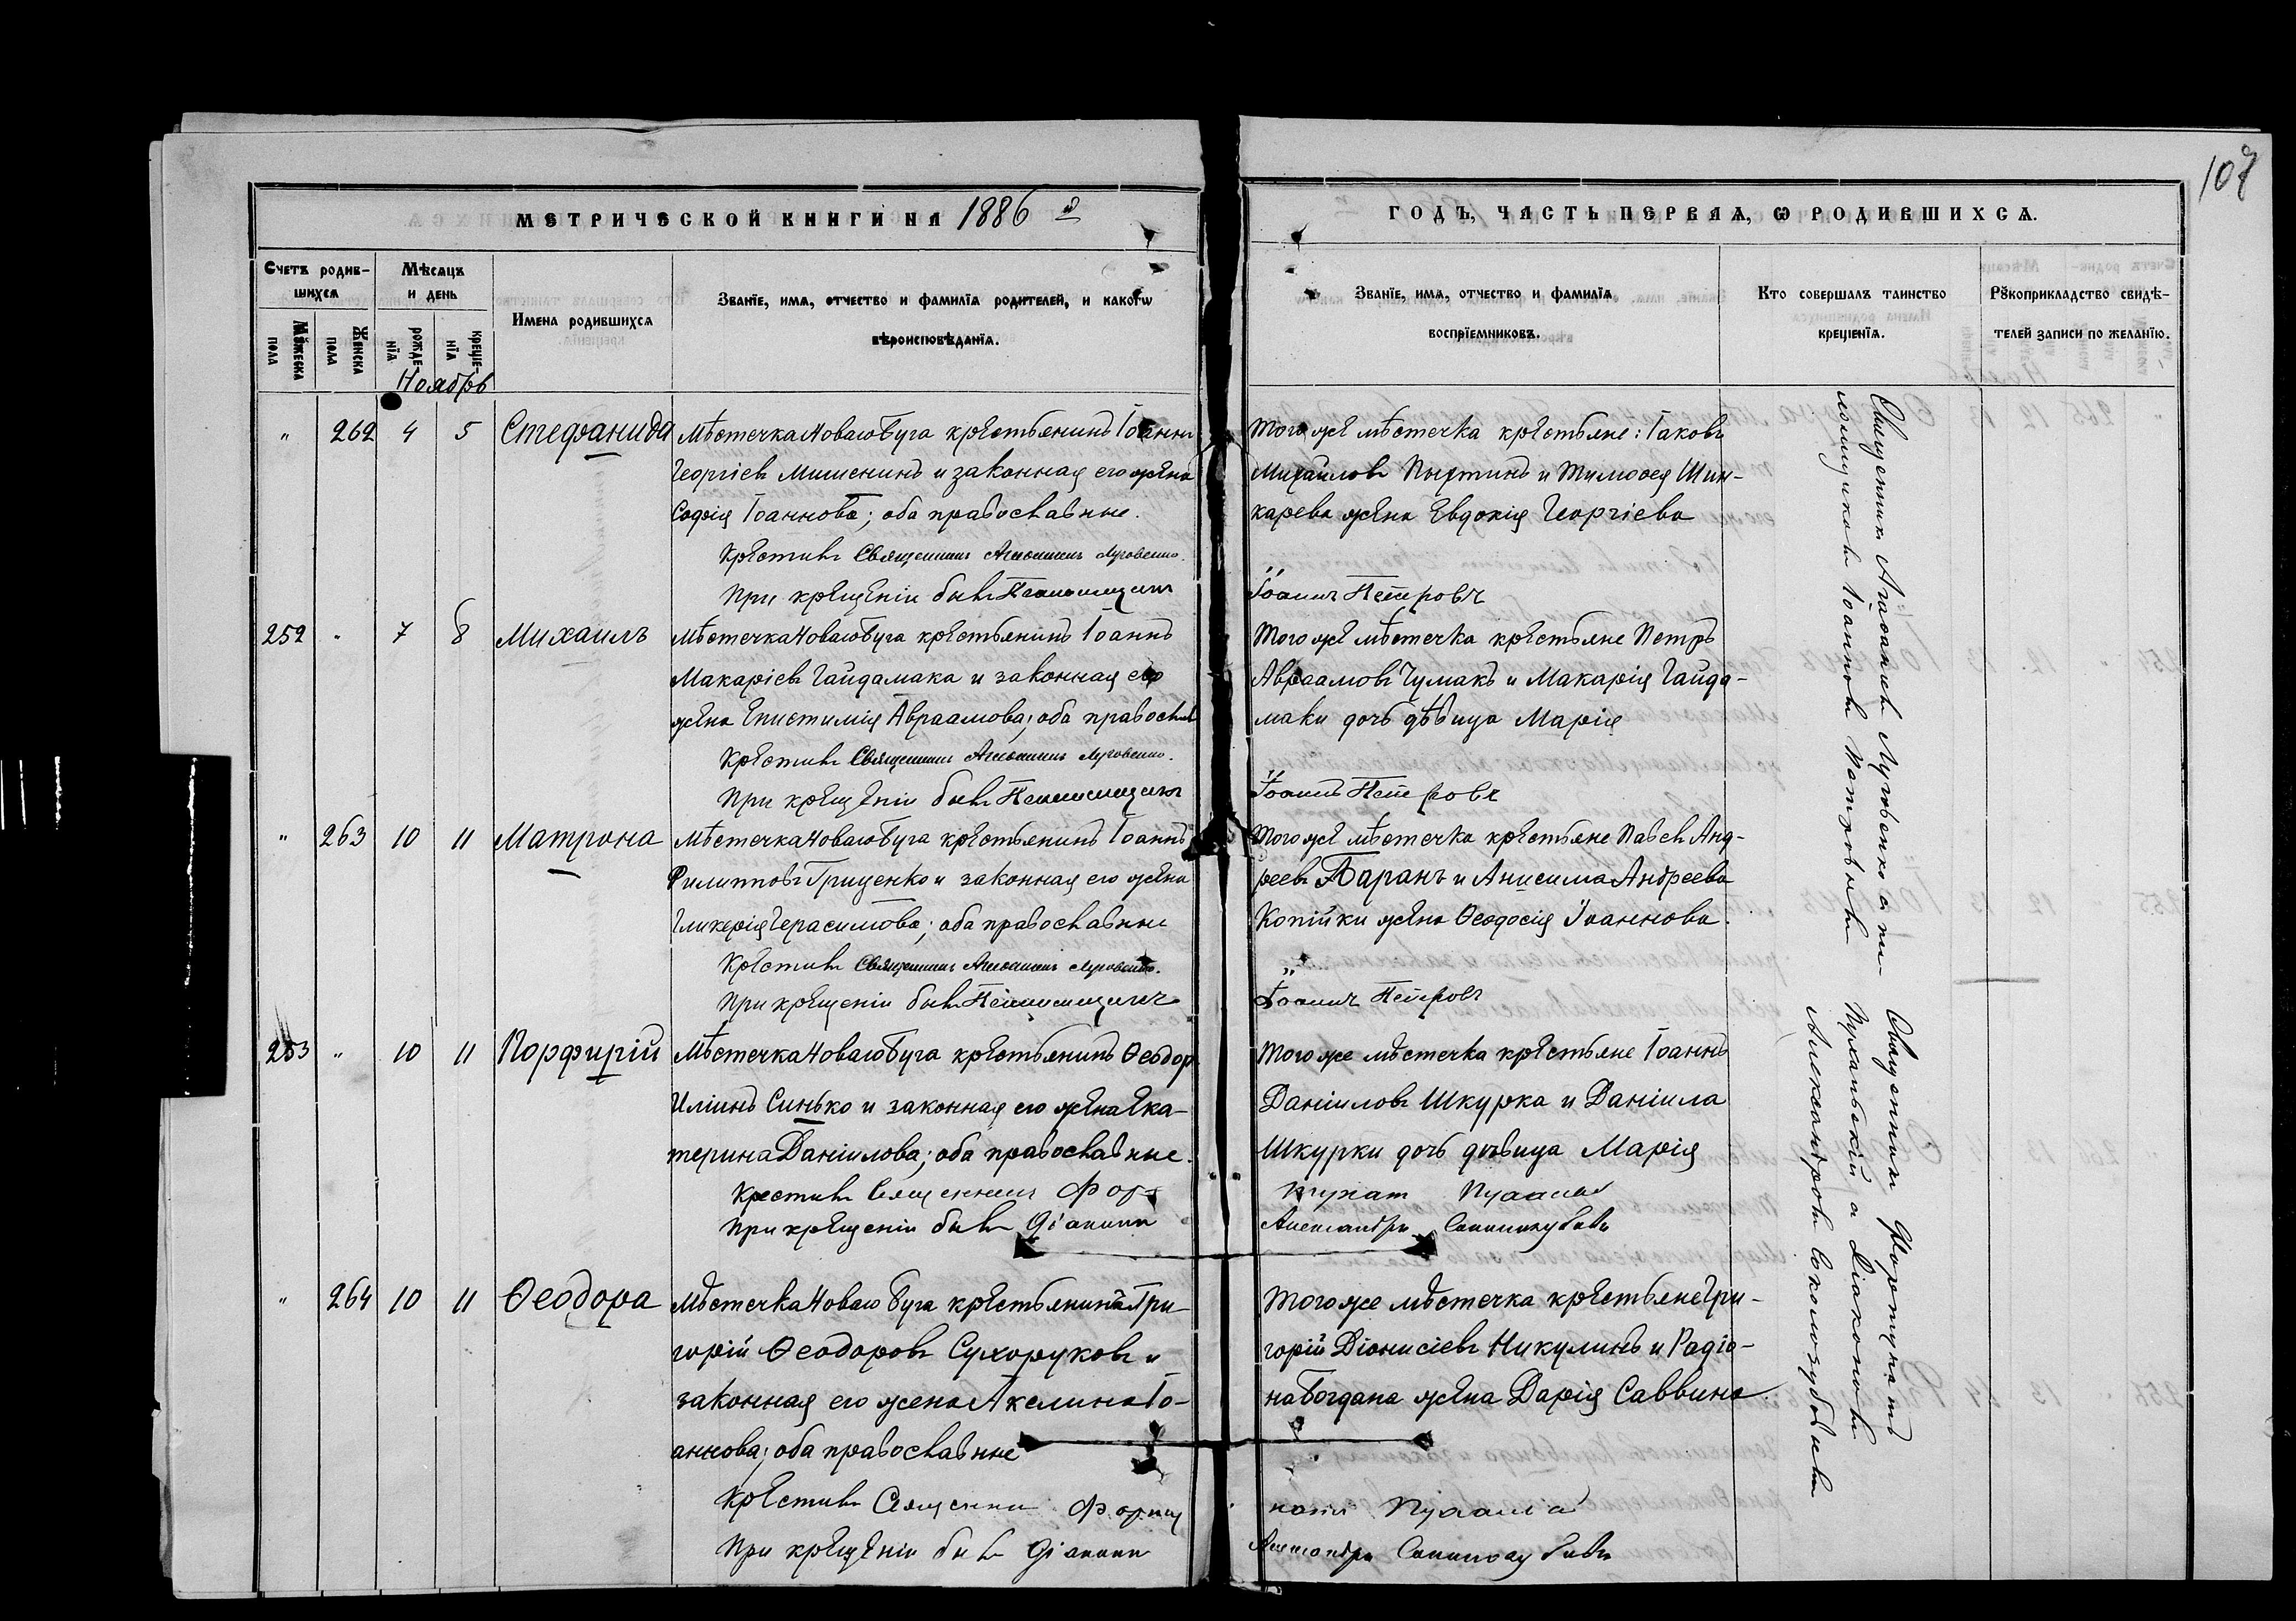 107
МЕТРИЧЕСКОЙ КНИГИ НА 1886 й
ГОДЪ, ЧАСТЬ ПЕРВАЯ, Ѡ РОДИВШИХСѦ.
Счетъ родив-
шихсѧ
Мѣсѧцъ
и день
Мꙋжеска
пола
Женска
пола
рожде-
нїѧ
креще-
нїѧ
Имена родившихсѧ
Званїе, имѧ, отчество и фамилїѧ родителей, и какогѡ
вѣроисповѣданїѧ.
Званїе, имѧ, отчество и фамилїѧ
воспрїемниковъ.
Кто совершалъ таинство
крещенїѧ.
Рꙋкоприкладство свидѣ-
телей записи по желанїю.
Ноябрь
" 262 4 5 Стефанида
Мѣстечка Новаго Буга крестьянинъ Іоаннъ
Георгіевъ Мишенинъ и законная его жена
Софія Іоаннова; оба православные.
Крестилъ Священникъ Агаѳангелъ Луговенко.
При крещеніи былъ Псаломщикъ
Того же мѣстечка крестьяне: Іаковъ
Михайловъ Пыхтинъ и Тимоѳея Шин-
карева жена Евдокія Георгіева
Іоаннъ Петровъ
252 " 7 8 Михаилъ
Мѣстечка Новаго Буга крестьянинъ Іоаннъ
Макаріевъ Гайдамака и законная его
жена Епистимія Авраамова; оба правосл
Крестилъ Священникъ Агаѳангелъ Луговенко.
При крещеніи былъ Псаломщикъ
Того же мѣстечка крестьяне Петръ
Авраамовъ Чумакъ и Макарія Гайда-
маки дочь дѣвица Марія
Іоаннъ Петровъ
" 263 10 11 Матрона
Мѣстечка Новаго Буга крестьянинъ Іоаннъ
Филипповъ Гриценко и законная его жена
Гликерія Герасимова; оба православные
Крестилъ Священникъ Агаѳангелъ Луговенко.
При крещеніи былъ Псаломщикъ
Того же мѣстечка крестьяне Павелъ Анд-
реевъ Баранъ и Анисима Андреева
Копійки жена Ѳеодосія Іоаннова.
Іоаннъ Петровъ
253 " 10 11 Порфирій
Мѣстечка Новаго Буга крестьянинъ Ѳеодоръ
Иліинъ Синько и законная его жена Ека-
терина Даніилова; оба православные.
Крестилъ Священникъ Фор
При крещеніи былъ Діаконъ
Того же мѣстечка крестьяне Іоаннъ
Даніиловъ Шкурка и Даніила
Шкурки дочь дѣвица Марія
Александръ
" 264 10 11 Ѳеодора
Мѣстечка Новаго Буга крестьянинъ Гри-
горій Ѳеодоровъ Сухоруковъ и
законная его жена Акелина Іо-
аннова; оба православные
Крестилъ Священникъ
При крещеніи былъ Діаконъ
Того же мѣстечка крестьяне Гри-
горій Діонисіевъ Никулинъ и Радіо-
на Богдана жена Дарія Саввина
Александръ
Священникъ Агаѳангелъ Луговенко съ пса-
ломщикомъ Іоанномъ Петровымъ
Священникъ Фортунатъ
съ Діакономъ
Александромъ Соколозубовымъ